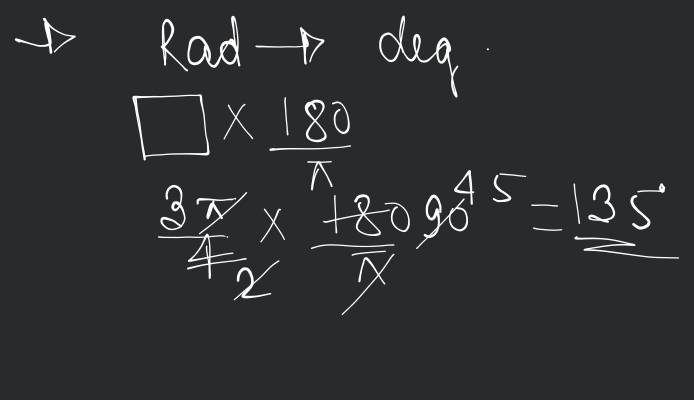 → Rad → deg.
□ × 180/π
3π/4 2 × 180 90 45/π = 135